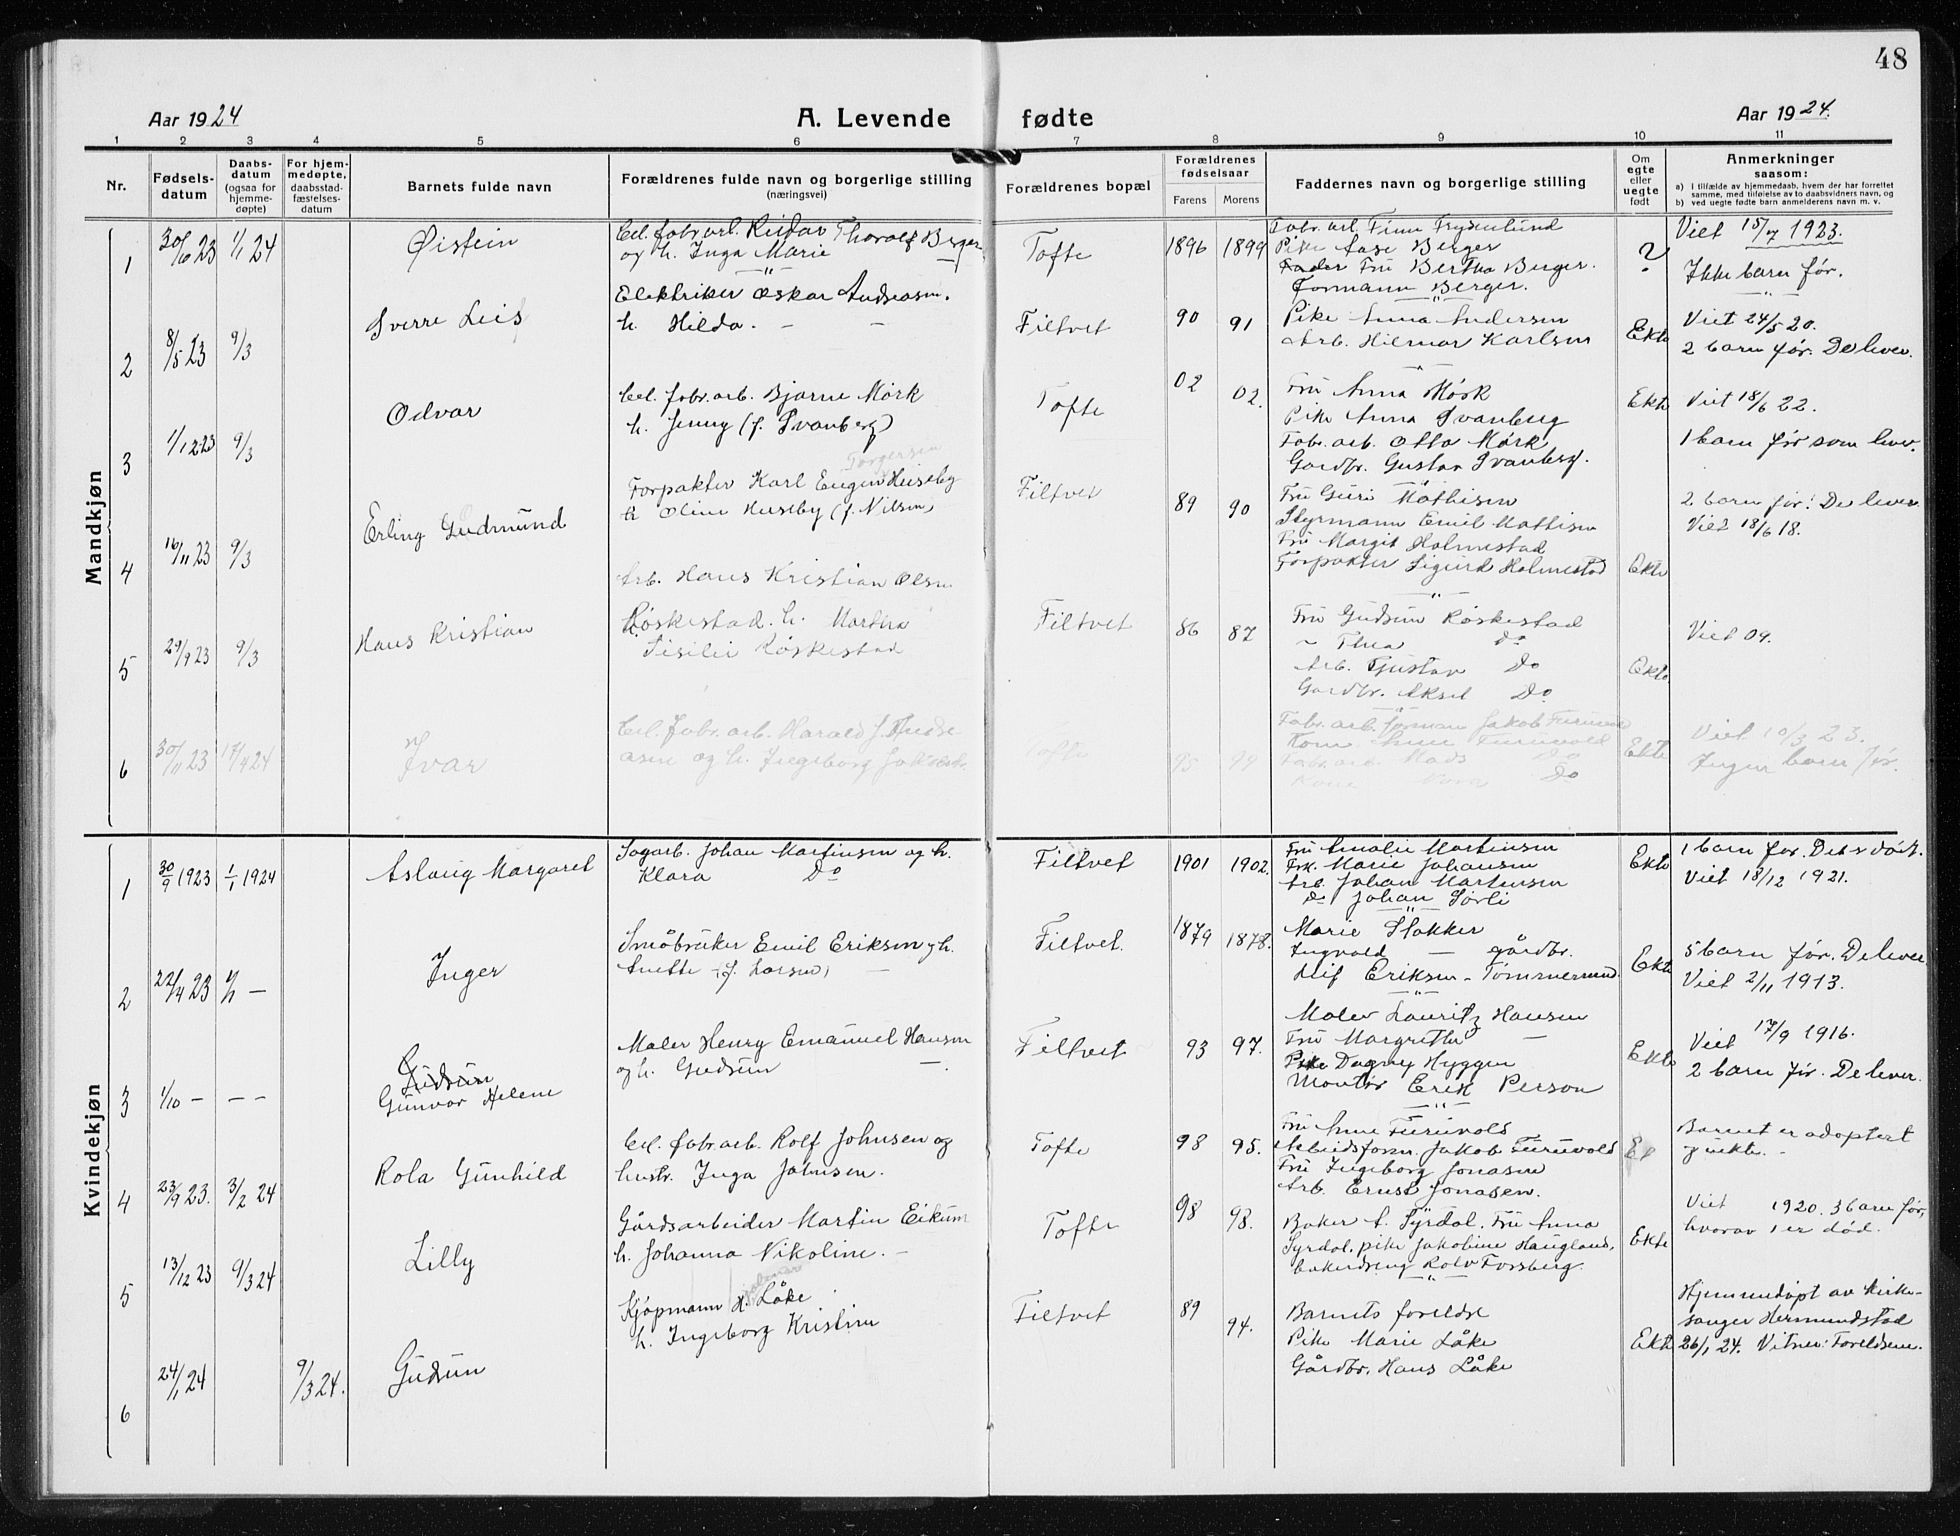 48
Aar 1924
A. Levende fødte
Aar 1924.
1 2 3 4 5 6 7 8 9 10 11
Nr.
Fødsels-
datum
Daabs-
datum
(ogsaa for
hjemme-
døpte)
For hjem-
medøpte,
daabsstad-
fæstelses-
datum
Barnets fulde navn
Forældrenes fulde navn og borgerlige stilling
(næringsvei)
Forældrenes bopæl
Forældrenes
fødselsaar
Farens Morens
Faddernes navn og borgerlige stilling
Om
egte
eller
uegte
født
Anmerkninger
saasom:
a) i tilfælde av hjemmedaab, hvem der har forrettet
samme, med tilføielse av to daabsvidners navn, og
b) ved uegte fødte barn anmelderens navn m. v.
Mandkjøn
1
30/6 23 1/1 24
Øistein
Cel. fabr. arb. Reidar Thoralf Berger
og h. Inga Marie
Tofte
1896 1899
Fabr. arb. Finn Frydenlund
Pike Aase Berger
Fru Bertha Berger.
Formann Berger.
?
Viet 15/7 1923.
Ikke barn før.
2
8/5 23 9/3
Sverre Leif
Elektriker Oskar Andreasen.
h. Hilda. — —
Filtvet
90 91
Pike Anna Andersen
Arb. Hilmar Karlsen
Ekte
Viet 24/5 20.
2 barn før. De lever.
3
1/12 23 9/3
Odvar
Cel. fabr. arb. Bjarne Mørk
h. Jenny (f. Svanberg)
Tofte
02 02.
Fru Anna Mørk
Pike Anna Svanberg
Fabr. arb. Otto Mørk
Gardbr. Gustav Svanberg.
Ekte
Viet 18/6 22.
1 barn før som lever.
4
16/11 23 9/3
Erling Gudmund
Torgersen
Forpakter Karl Eugen Huseby
h. Oline Huseby (f. Nilsen)
Filtvet
89 90
Fru Guri Mathisen
Styrmann Emil Mathisen
Fru Margit Holmestad
Forpakter Sigurd Holmestad
Ekte
2 barn før! De lever.
Viet 18/6 18.
5
29/9 23 9/3
Hans Kristian
Arb. Hans Kristian Olsen
Røskestad. h. Martha
Sisilie Røskestad
Filtvet
86 87
Fru Gudrun Røskestad
~ Thea Do
Arb. Gustav Do
Gardbr. Aksel Do
Ekte
Viet 09.
6
30/11 23 17/4 24
Ivar
Cel. fabr. arb. Harald J. Andre-
asen og h. Ingeborg
Tofte
95 99
Fabr. arb. forman Jakob Furuvold
Kone Anne Furuvold
Fabr. arb. Mads Do
Kone Do
Ekte
Viet 10/3 23.
Ingen barn før.
Kvindekjøn
1
30/9 1923 1/1 1924
Aslaug Margaret
Sagarb. Johan Martinsen og h.
Klara Do
Filtvet
1901 1902.
Fru Amalie Martinsen
Frk. Marie Johansen
Arb. Johan Martinsen
Do Johan Sørli
Ekte
1 barn før. Det er død.
Viet 18/12 1921.
2
22/4 23 1/1 —
Inger
Småbruker Emil Eriksen og h.
Anette (f. Larsen) —
Filtvet.
1879 1878.
Marie Stokker
Ingvald — gårdbr.
Ulif Eriksen – Tømmermand.
Ekte
5 barn før. De lever
Viet 2/11 1913.
3
1/10 — — —
Gudrun
Gunvor Helene
Maler Henry Emanuel Hansen
og h. Gudrun —
Filtvet
93 97.
Maler Lauritz Hansen
Fru Margrethe —
Pike Dagny Hyggen
Montør Erik Person
Ekte
Viet 17/9 1916.
2 barn før. De lever.
4
23/9 23. 3/2 24
Rola Gunhild
Cel. fabr. arb. Rolf Johnsen og
hustr. Inga Johnsen.
Tofte
98 95.
Fru Anne Furuvold
Arbeidsform. Jakob Furuvold
Fru Ingeborg Jonasen
Arb. Ernst Jonasen.
Barnet er adoptert
5
13/12 23 9/3 24
Lilly
Gårdsarbeider Martin Eikum
h. Johanna Nikoline. —
Tofte
98 98.
Baker A. Syrdal. Fru Anna
Syrdal, pike Jakobine Haugland,
bakerdreng Rolv Forsberg.
Ekte
Viet 1920. 3 barn før,
hvorav 1 er død.
6
24/1 24 9/3 24.
Gudrun
Hjalmar
Kjøpmann H. Låke
h. Ingeborg Kristine
Filtvet
89 94.
Barnets foreldre
Pike Marie Låke
Gårdbr. Hans Låke
Ekte
Hjemmedøpt av kirke-
sanger Hermundstad
26/1 24. Vitner: Foreldrene.